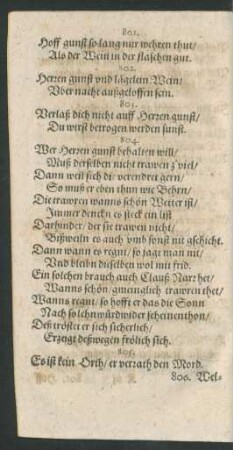 801.
Hoff gunst so lang nur wehren thut/
Als der Wein in der flaschen gut.
802.
Herren gunst vnd lägelein Wein/
Vber nacht außgeloffen sein.
803.
Verlaß dich nicht auff Herren gunst/
Du wirst betrogen werden sunst.
804.
Wer Herren gunst behalten will/
Muß derselben nicht trawen z'viel/
Dann weil sich die verendret gern/
So muß er eben thun wie Behrn/
Die trawren wanns schön Wetter ist/
Immer dencken es steck ein list
Darhinder/ der sie trawen nicht/
Bißweiln es auch vmb sonst nit gschicht.
Dann wann es regnt/ so jagt man nit/
Vnd bleibn dieselben wol mit frid.
Ein solchen brauch auch Clauß Narr het/
Wanns schön/ gmeinglich trawren thet/
Wanns regnt/ so hofft er das die Sonn
Nach solchn würd wider scheinen thon/
Deß tröstet er sich sicherlich/
Erzeigt deßwegen frölich sich.
805.
Es ist kein Orth/ er verrath den Mord.
806. Wel-